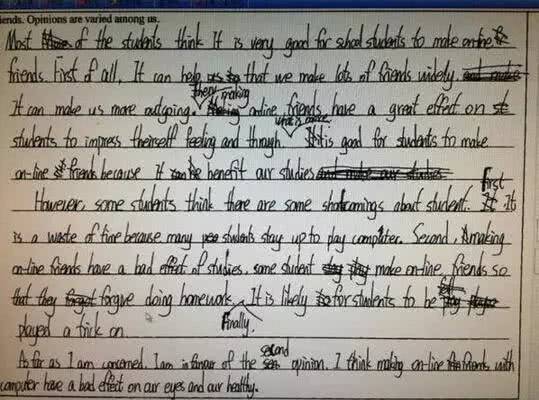 iends. Opinions are varied among us.
Most of the students think It is very good for school students to make on-line
friends. First of all, It can help us that we make lots of friends widely.
It can make us more outgoing. Then, making on-line friends have a great effect on
students to impress theirself feeling and through. What is more, It is good for students to make
on-line friends because it can benefit our studies
However, some students think there are some shortcomings about student. First It
is a waste of time because many students stay up to play computer. Second, making
on-line friends have a bad effect of studies, some student make on-line friends so
that they forgive doing homework. It is likely for students to be
played a trick on. Finally.
As far as I am concerned, I am in favour of the second opinion. I think making on-line friends with
computer have a bad effect on our eyes and our healthy.